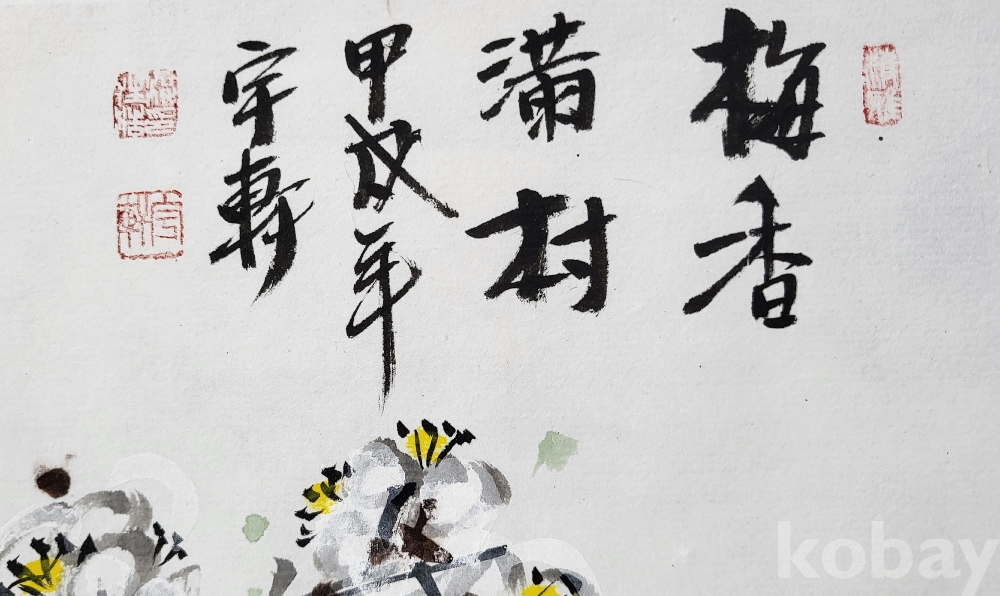 梅香
滿村
甲戌年
宇軒
kobay